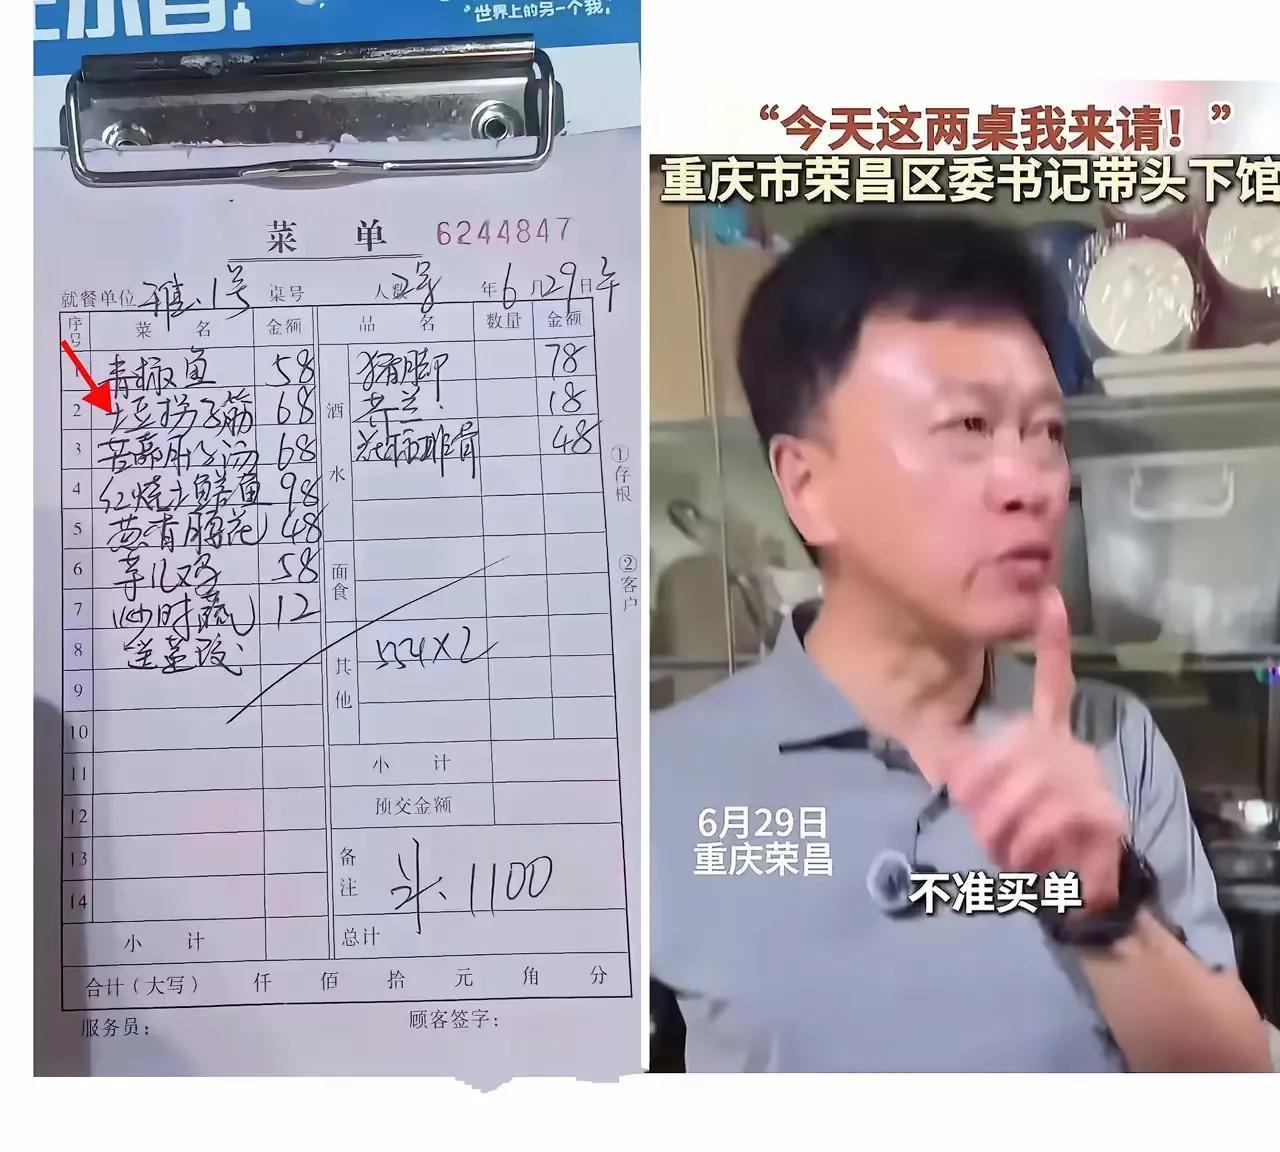 世界上的另一个我
菜 单 6244847
就餐单位 雅.1号 桌号 人数 2号 年 6 月 29 日 午
序号 菜 名 金额 品 名 数量 金额
1 青椒鱼 58 酒水 猪脚 78
2 土豆拐子筋 68 18
3 68 花 排骨 48
4 红烧土鳝鱼 98
5 葱香脑花 48
6 芋儿鸡 58 面食
7 炒时蔬 12
8 其他 554×2
9
10
11 小 计
12 预交金额
13 备注 斗.1100
14
小 计 总计
合计(大写) 仟 佰 拾 元 角 分
服务员: 顾客签字:
①存根
②客户
“今天这两桌我来请!”
重庆市荣昌区委书记带头下馆
6月29日
重庆荣昌
不准买单